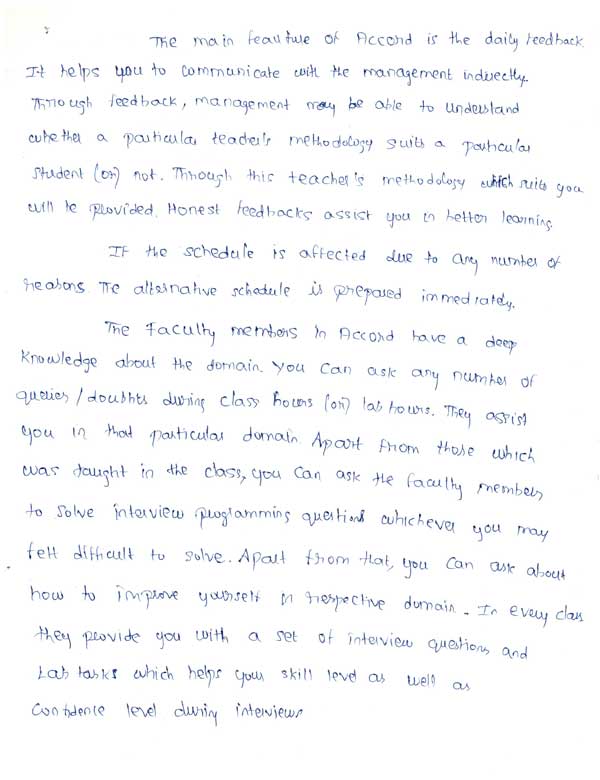 The main feauture of Accord is the daily feedback.
It helps you to communicate with the management indirectly.
Through feedback, management may be able to understand
whether a particular teacher's methodology suits a particular
student (or) not. Through this teacher's methodology which suits you
will be provided. Honest feedbacks assist you in better learning.
If the schedule is affected due to any number of
reasons The alternative schedule is prepared immediately.
The Faculty members in Accord have a deep
knowledge about the domain. You can ask any number of
queries/doubts during class hours (or) lab hours. They assist
you in that particular domain. Apart from those which
was taught in the class, you can ask the faculty members
to solve interview programming questions whichever you may
felt difficult to solve. Apart from that, you can ask about
how to improve yourself in respective domain. In every class
they provide you with a set of interview questions and
Lab tasks which helps your skill level as well as
confidence level during interviews